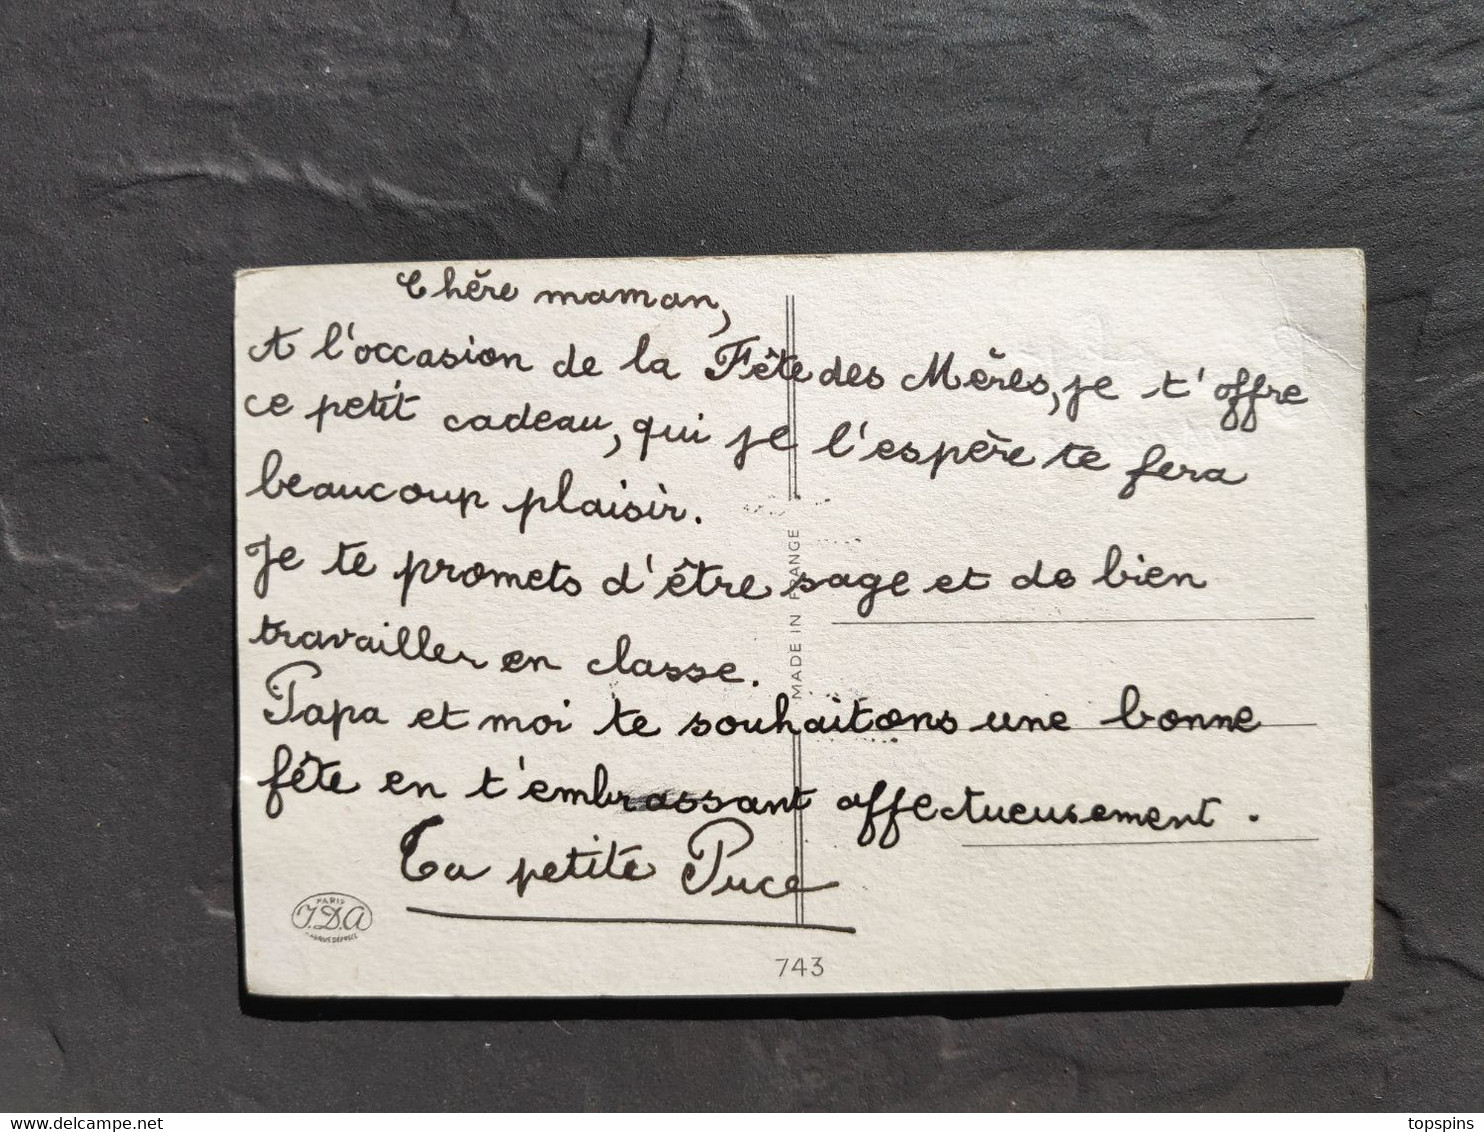 Chère maman,
A l'occasion de la Fête des Mères, je t'offre
ce petit cadeau, qui je l'espère te fera
beaucoup plaisir.
Je te promets d'être sage et de bien
travailler en classe.
Papa et moi te souhaitons une bonne
fête en t'embrassant affectueusement.
Ta petite Puce
MADE IN FRANCE
PARIS
J.D.A
743
delcampe.net
topspins